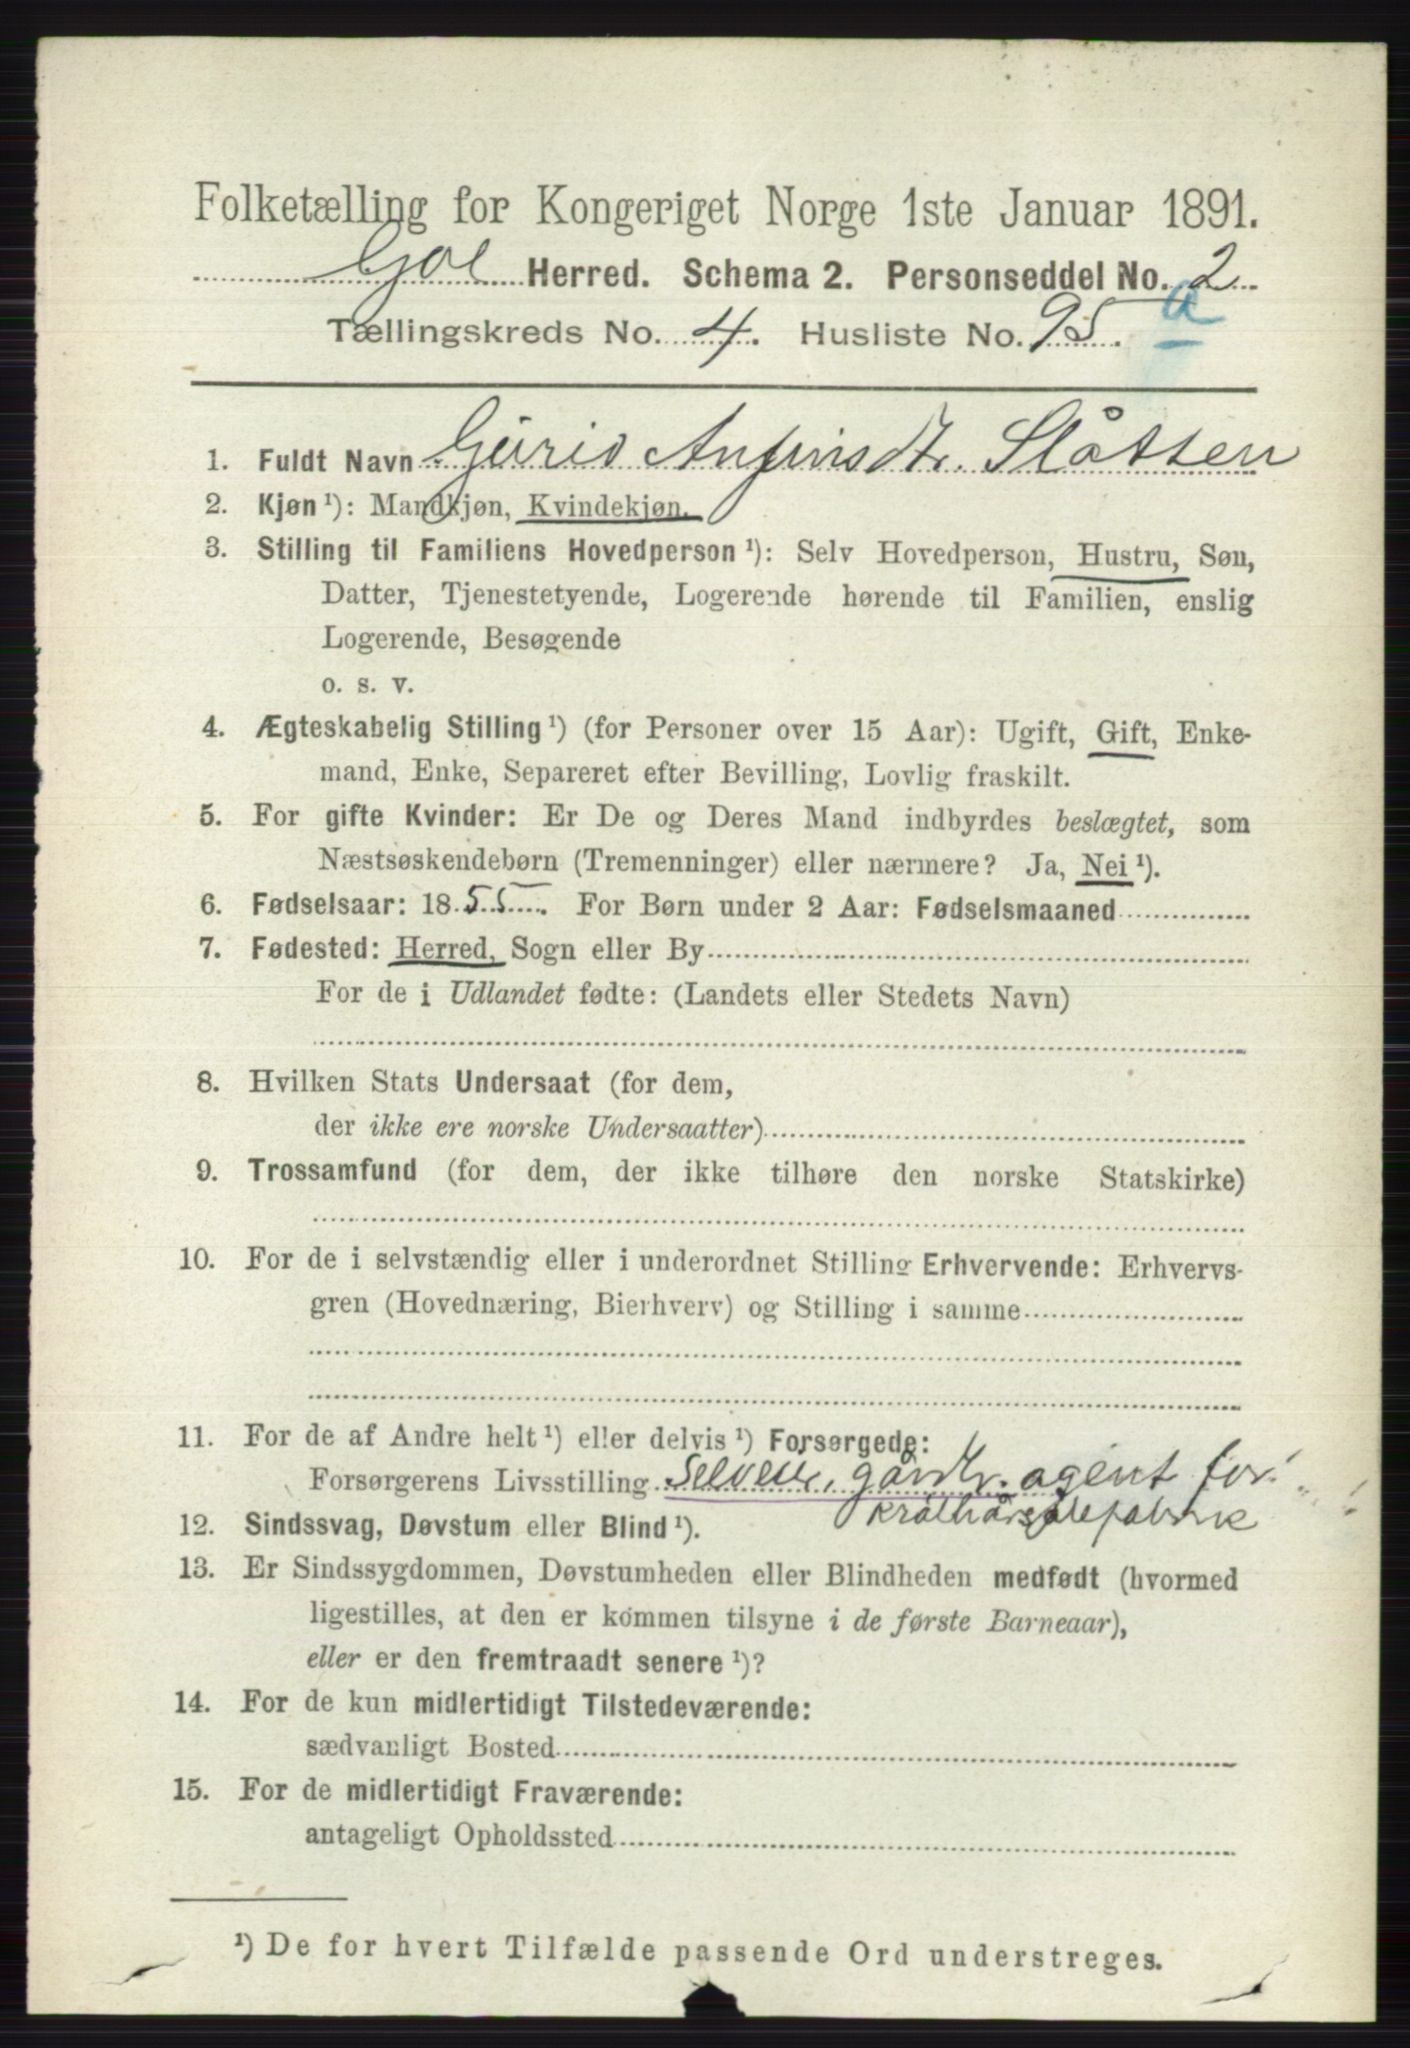 Folketælling for Kongeriget Norge 1ste Januar 1891.
Gol Herred. Schema 2. Personseddel No. 2
a
Tællingskreds No. 4. Husliste No. 95.
1. Fuldt Navn Gúrid Anfinsdtr. Slåtten
2. Kjøn ¹): Mandkjøn, Kvindekjøn.
3. Stilling til Familiens Hovedperson ¹): Selv Hovedperson, Hustru, Søn,
Datter, Tjenestetyende, Logerende hørende til Familien, enslig
Logerende, Besøgende
o. s. v.
4. Ægteskabelig Stilling ¹) (for Personer over 15 Aar): Ugift, Gift, Enke-
mand, Enke, Separeret efter Bevilling, Lovlig fraskilt.
5. For gifte Kvinder: Er De og Deres Mand indbyrdes beslægtet, som
Næstsøskendebørn (Tremenninger) eller nærmere? Ja, Nei ¹).
6. Fødselsaar: 1855. For Børn under 2 Aar: Fødselsmaaned
7. Fødested: Herred, Sogn eller By
For de i Udlandet fødte: (Landets eller Stedets Navn)
8. Hvilken Stats Undersaat (for dem,
der ikke ere norske Undersaatter)
9. Trossamfund (for dem, der ikke tilhøre den norske Statskirke)
10. For de i selvstændig eller i underordnet Stilling Erhvervende: Erhvervs-
gren (Hovednæring, Bierhverv) og Stilling i samme
11. For de af Andre helt ¹) eller delvis ¹) Forsørgede:
Forsørgerens Livsstilling Selveier, gårdbr. agent for
12. Sindssvag, Døvstum eller Blind ¹).
13. Er Sindssygdommen, Døvstumheden eller Blindheden medfødt (hvormed
ligestilles, at den er kommen tilsyne i de første Barneaar),
eller er den fremtraadt senere ¹)?
14. For de kun midlertidigt Tilstedeværende:
sædvanligt Bosted
15. For de midlertidigt Fraværende:
antageligt Opholdssted
¹) De for hvert Tilfælde passende Ord understreges.